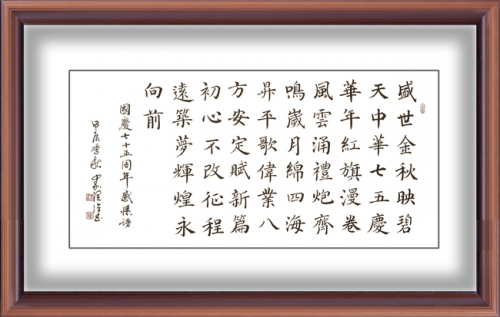 盛世金秋映碧
天中華七五慶
華年紅旗漫卷
風雲涌禮炮齊
鳴歲月綿四海
昇平歌偉業八
方安定賦新篇
初心不改征程
遠築夢輝煌永
向前
國慶七十五周年感懷詩
甲辰季秋